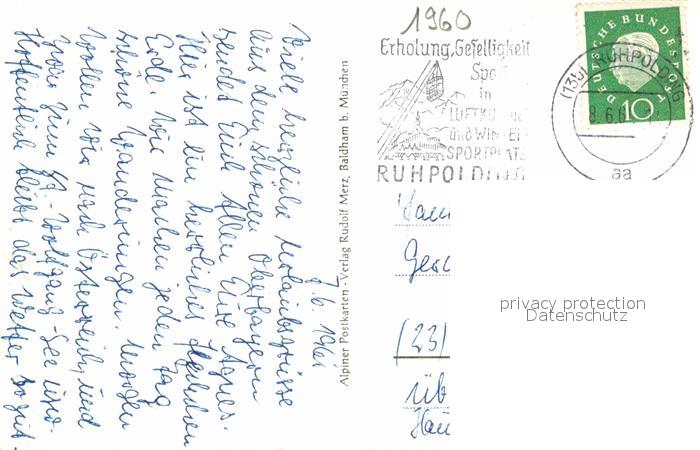 1960
Erholung, Geselligkeit
Spo
in
LUFTKU
und WINTER-
SPORTPLATZ
RUHPOLDING
DEUTSCHE BUNDESPOST
10
(13b) RUHPOLDING
8.6.6
aa
7.6.1961
Viele herzliche Urlaubsgrüsse
aus dem schönen Oberbayern
sendet Euch allen Eure Agnes.
Hier ist ein herrliches Fleckchen
Erde. Wir machen jeden Tag
schöne Wanderungen. Morgen
wollen wir nach Österreich, und
zwar zum St. Wolfgang-See
Hoffentlich bleibt das Wetter so gut
Alpiner Postkarten-Verlag Rudolf Merz, Baldham b. München
Fam
Gesc
(23)
üb
Han
privacy protection
Datenschutz